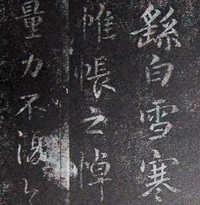 繇白雪寒
帷帳之悼
量力不復